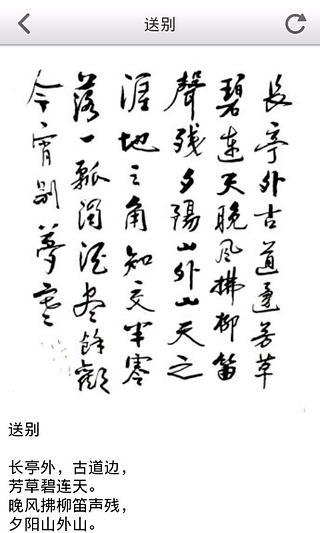 送别
长亭外古道邊芳草
碧连天晚风拂柳笛
聲残夕陽山外山天之
涯地之角知交半零
落一瓢濁酒尽餘歡
今宵别夢寒
送别
长亭外，古道边，
芳草碧连天。
晚风拂柳笛声残，
夕阳山外山。